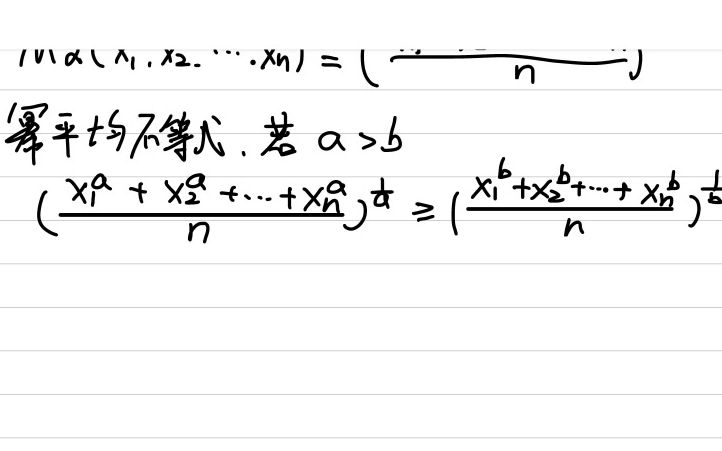 Mα(x₁,x₂…xₙ) = (‾n)
幂平均不等式. 若 a>b
((x₁ᵃ + x₂ᵃ +…+xₙᵃ)/n)^(1/a) ≥ ((x₁ᵇ+x₂ᵇ+…+xₙᵇ)/n)^(1/b)